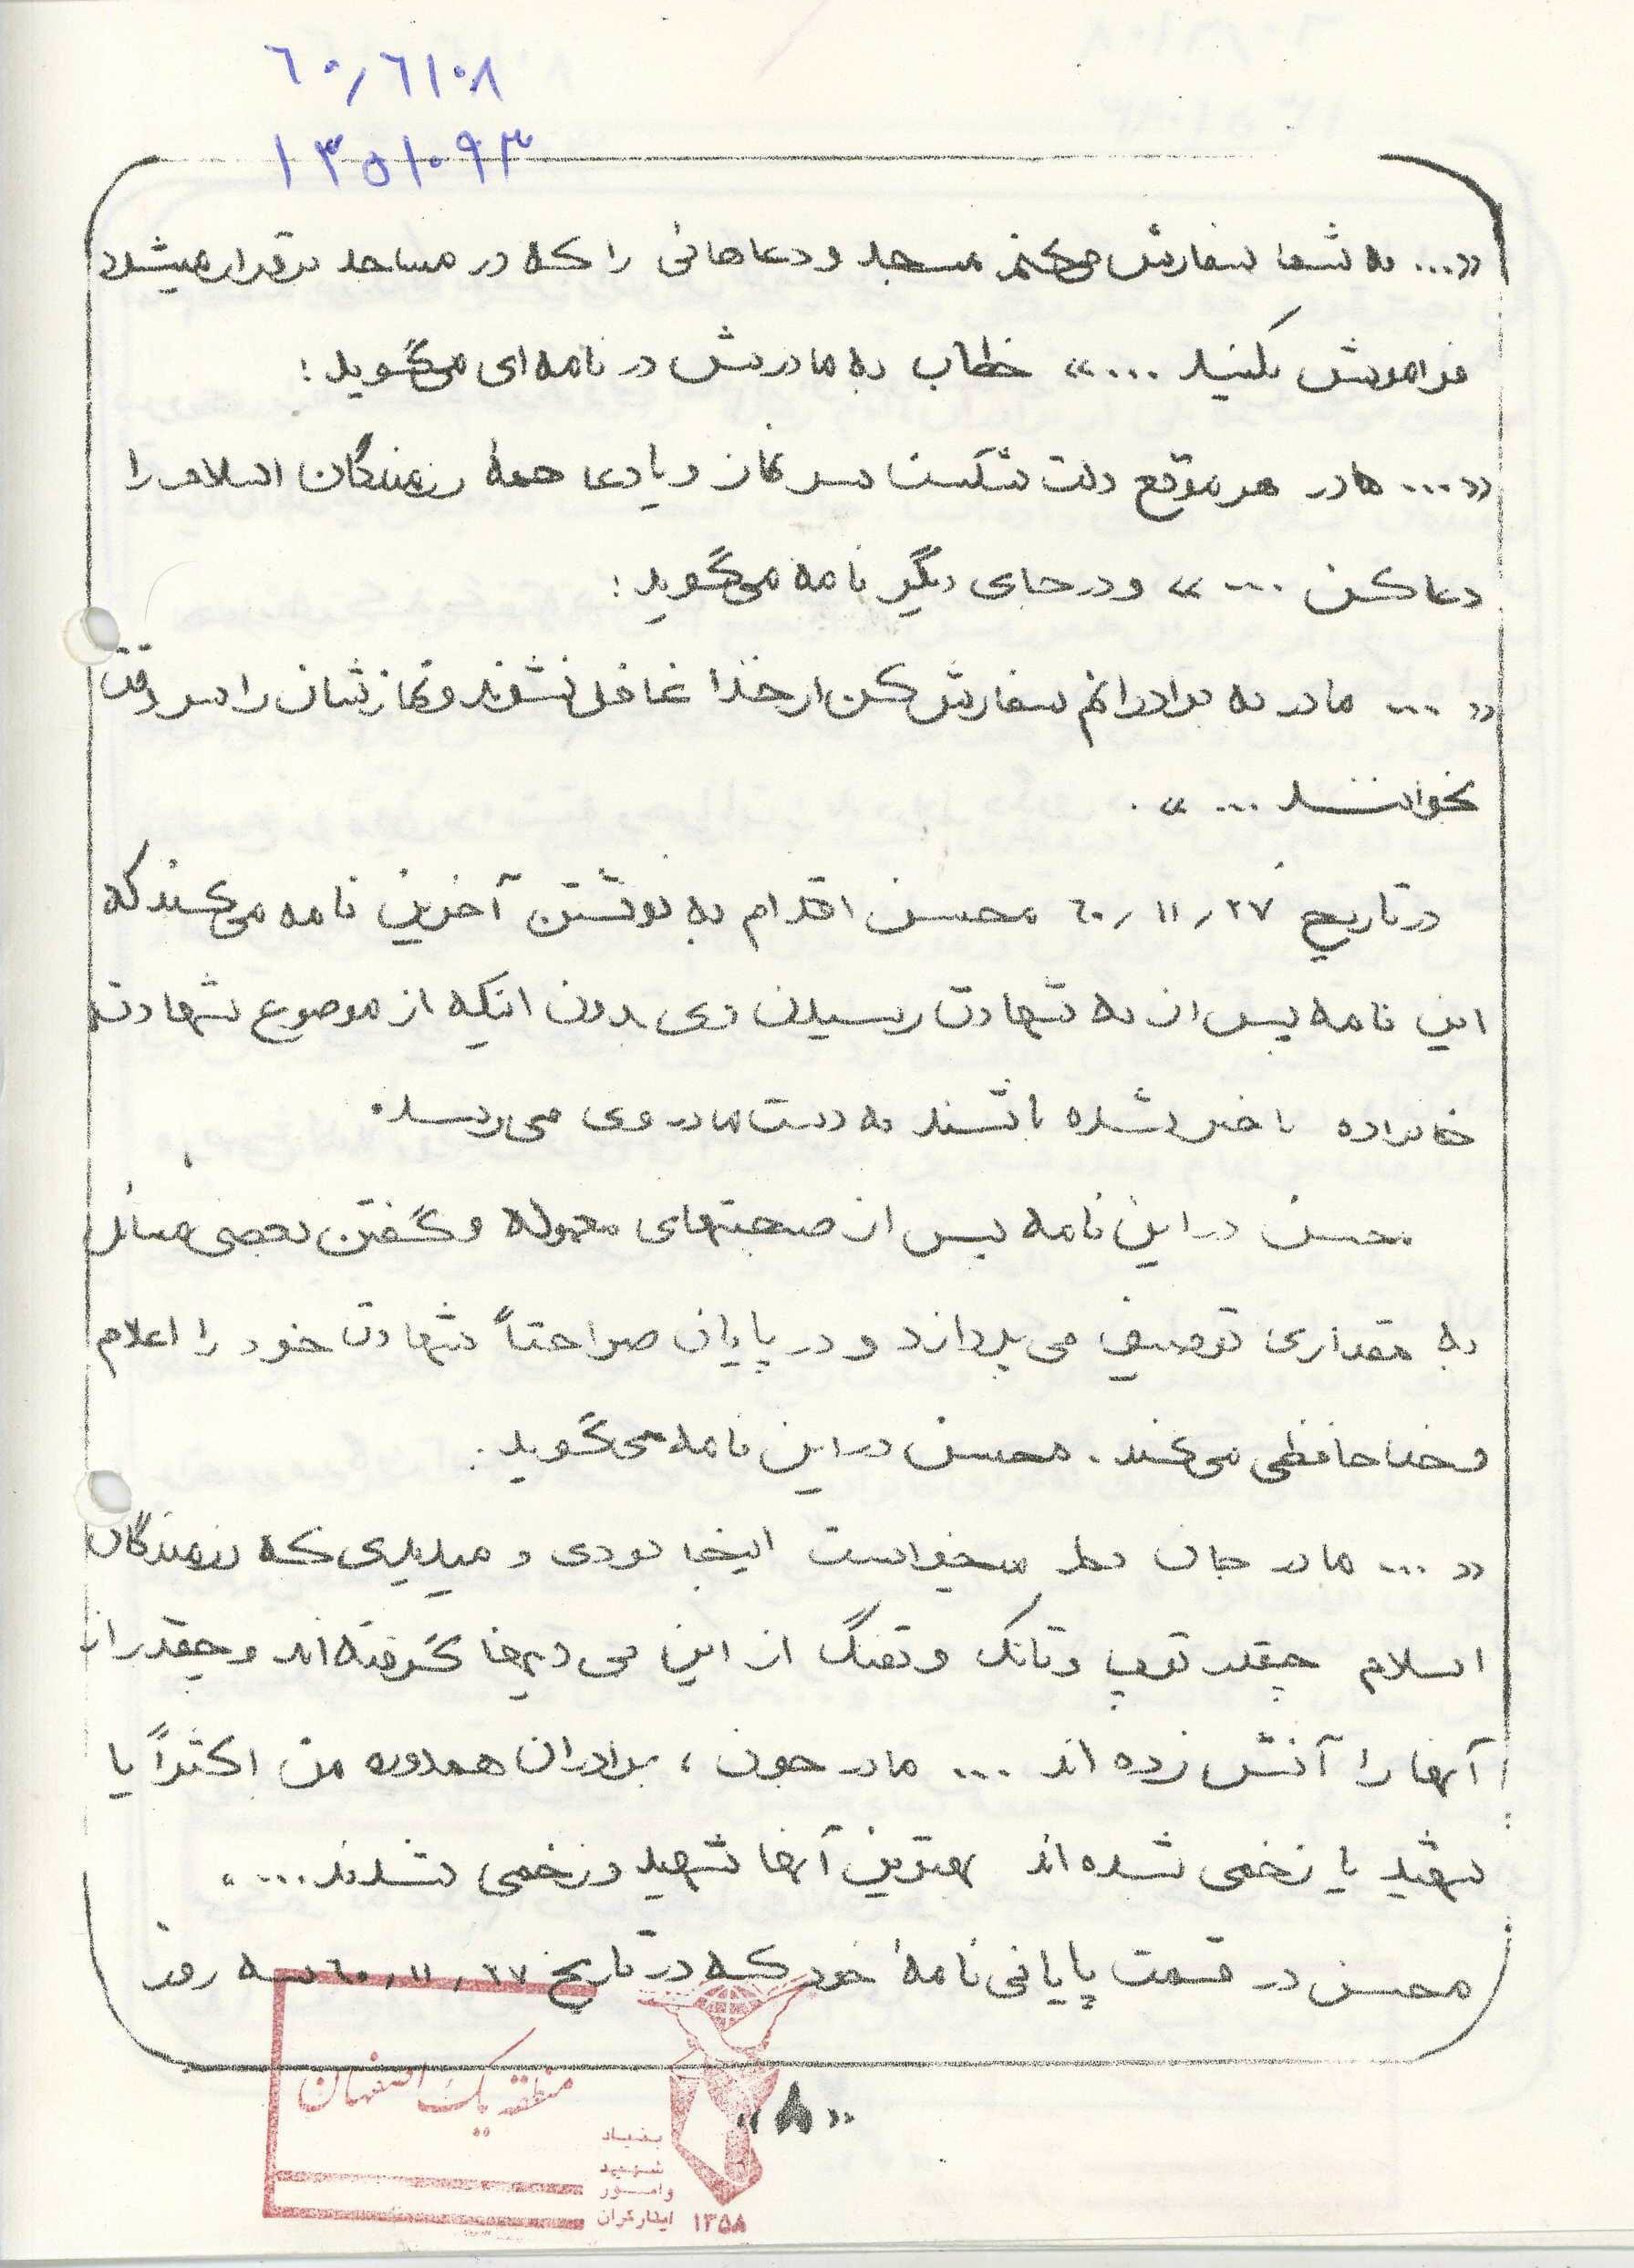 ۶۰٫۶۱۰۸
۱۳۵۱۰۹۳
«... به شما سفارش میکنم مسجد و دعاهائی را که در مساجد برقرار میشود
فراموش نکنید ...» خطاب به مادرش در نامه‌ای می‌گوید:
«... مادر هر موقع دلت شکست سر نماز و یا دعا همهٔ رزمندگان اسلام را
دعا کن ...» و در جای دیگر نامه می‌گوید:
«... مادر به برادرانم سفارش کن از خدا غافل نشوند و نمازشان را سر وقت
بخوانند ...».
در تاریخ ۶۰٫۱۱٫۲۷ محسن اقدام به نوشتن آخرین نامه می‌کند که
این نامه پس از به شهادت رسیدن وی بدون اینکه از موضوع شهادت
خانواده باخبر شده باشند به دست مادر وی می‌رسد.
محسن در این نامه پس از صحبتهای معموله و گفتن بعضی مسائل
به مقداری توصیف می‌پردازد و در پایان صراحتاً شهادت خود را اعلام
و خداحافظی می‌کند. محسن در این نامه می‌گوید:
«... مادر جان دلم میخواست اینجا بودی و میدیدی که رزمندگان
اسلام چقدر توپ و تانک و تفنگ از این بی دینها گرفته‌اند و چقدر از
آنها را آتش زده اند ... مادر جون، برادران همدوره من اکثراً یا
شهید یا زخمی شده‌اند بهترین آنها شهید و زخمی شدند ...»
محسن در قسمت پایانی نامهٔ خود که در تاریخ ۶۰٫۱۱٫۲۷ سه روز
«۸»
منطقه یک اصفهان
بنیاد
شهید
و امور
ایثارگران ۱۳۵۸